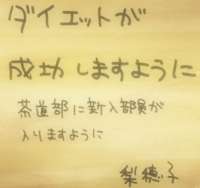 ダイエットが
成功しますように
茶道部に新入部員が
入りますように
梨穂子